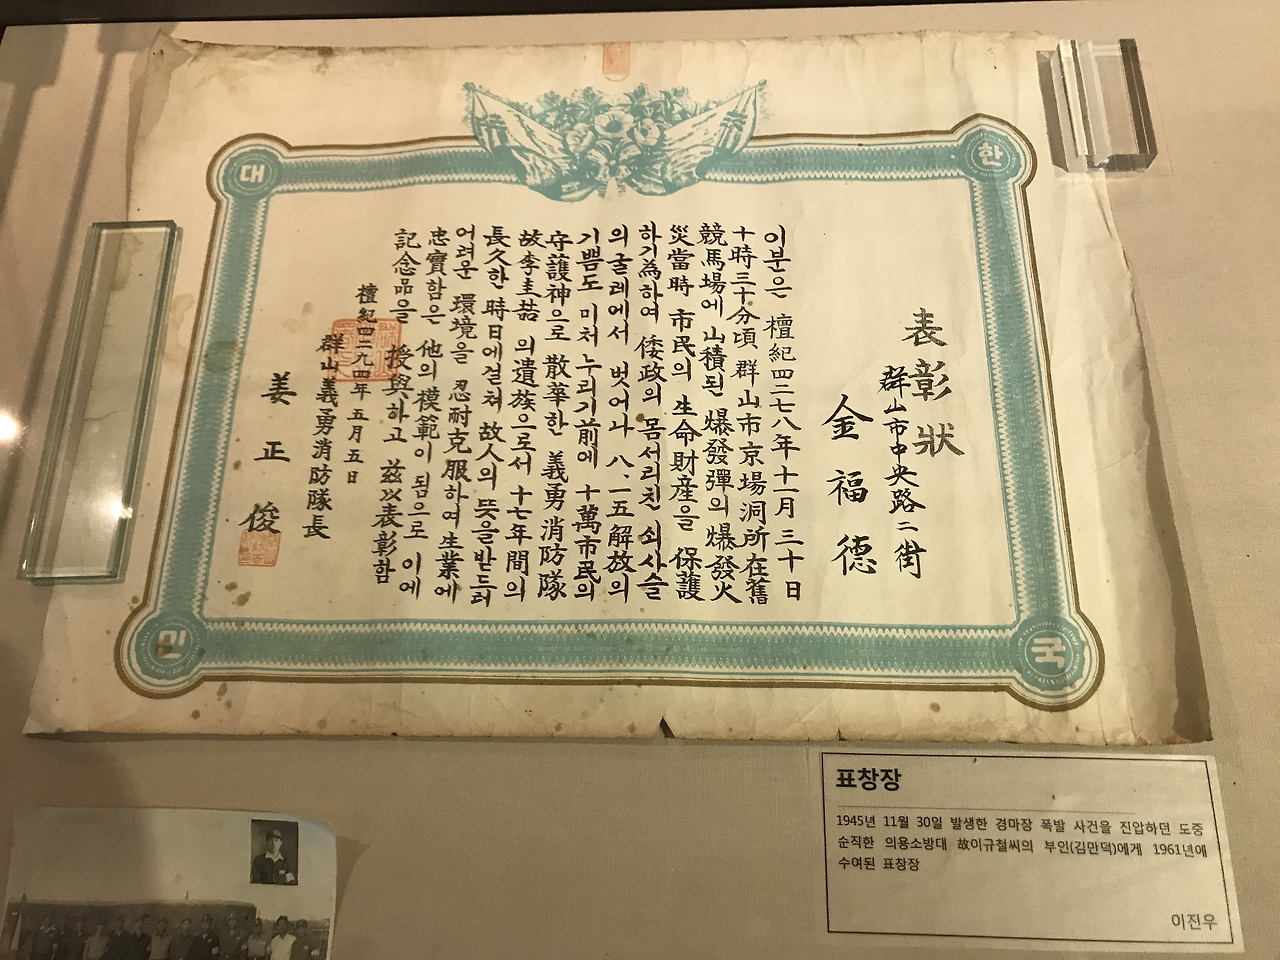 대한민국
表彰狀
群山市中央路二街
金福德
이분은 檀紀四二七八年十一月三十日
十時三十分頃 群山市京場洞所在舊
競馬場에 山積된 爆發彈의 爆發火
災當時 市民의 生命財産을 保護
하기爲하여 倭政의 몸서리친 쇠사슬
의굴레에서 벗어나 八.一五解放의
기쁨도 미처 누리기前에 十萬市民의
守護神으로 散華한 義勇消防隊
故李圭喆 의遺族으로서 十七年間의
長久한 時日에걸쳐 故人의 뜻을받드러
어려운 環境을 忍耐克服하여生業에
忠實함은 他의模範이 됨으로 이에
記念品을 授與하고 玆以表彰함
檀紀四二九四年 五月五日
群山義勇消防隊長
姜正俊
표창장
1945년 11월 30일 발생한 경마장 폭발 사건을 진압하던 도중
순직한 의용소방대 故이규철씨의 부인(김만덕)에게 1961년에
수여된 표창장
이진우